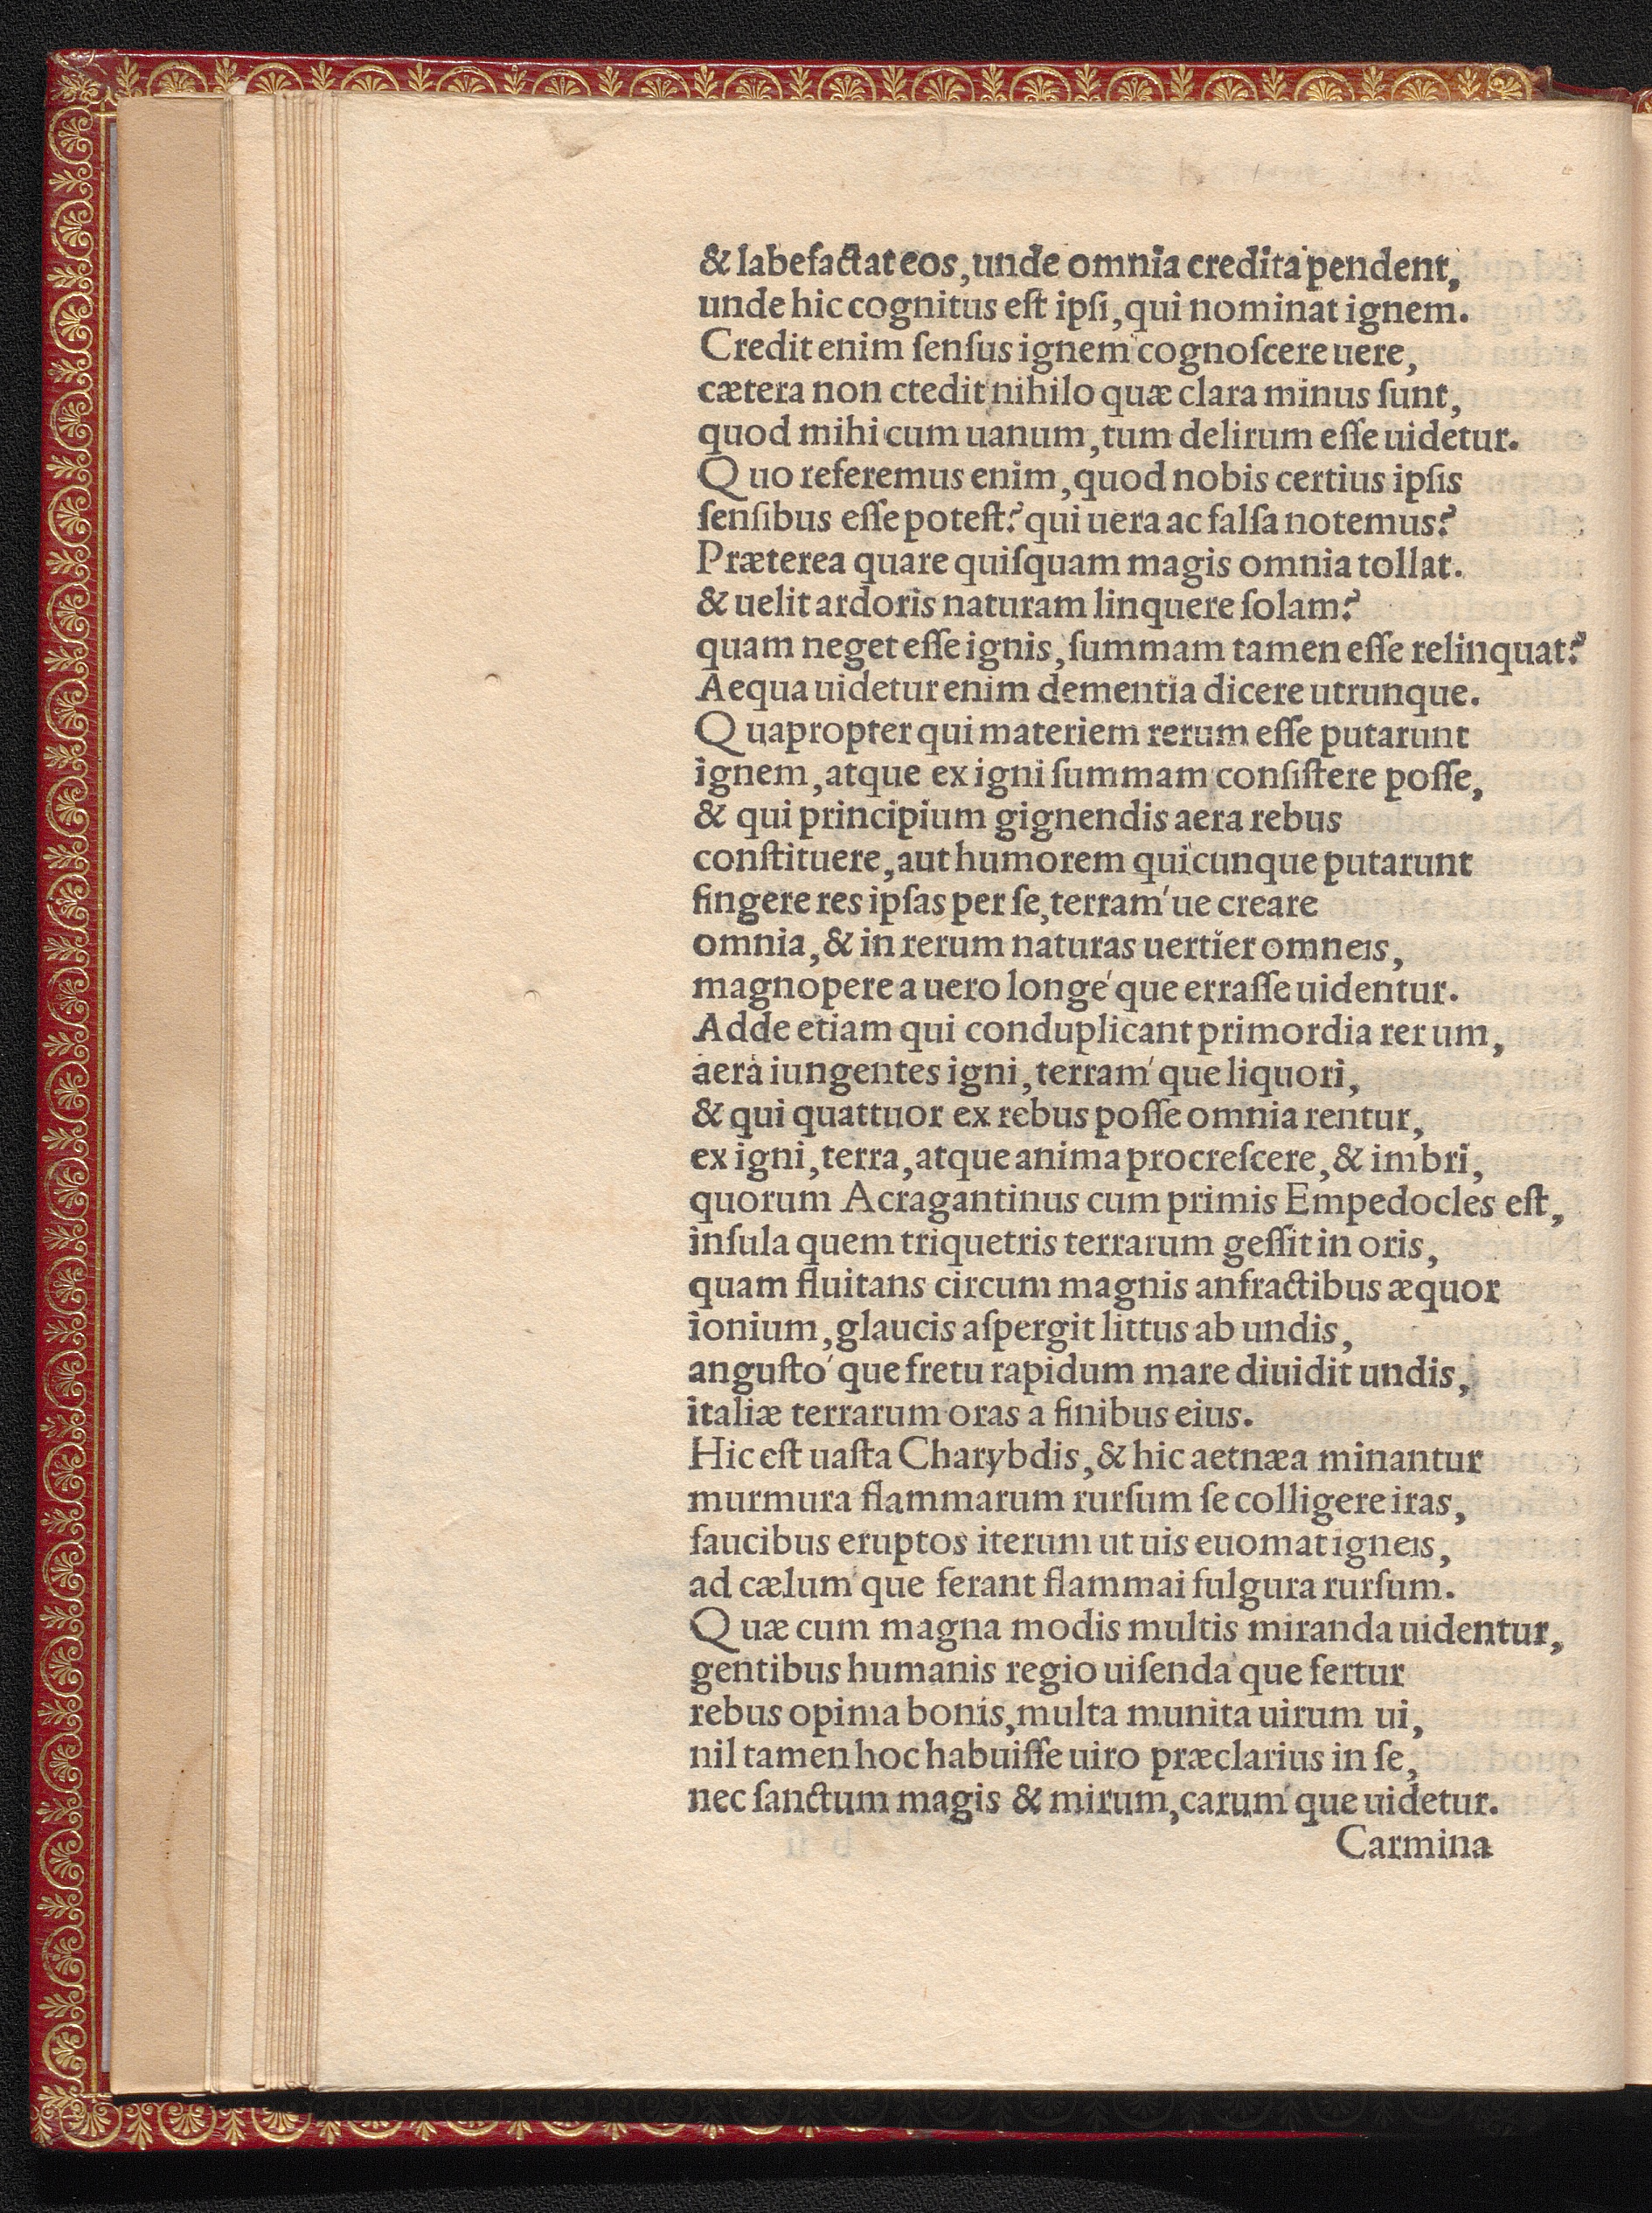 & labefactat eos, unde omnia credita pendent,
unde hic cognitus est ipſi, qui nominat ignem.
Credit enim ſenſus ignem cognoſcere uere,
cætera non ctedit nihilo quæ clara minus ſunt,
quod mihi cum uanum, tum delirum eſſe uidetur.
Quo referemus enim, quod nobis certius ipſis
ſenſibus eſſe potest? qui uera ac falſa notemus?
Præterea quare quiſquam magis omnia tollat.
& uelit ardoris naturam linquere ſolam?
quam neget eſſe ignis, ſummam tamen eſſe relinquat?
Aequa uidetur enim dementia dicere utrunque.
Quapropter qui materiem rerum eſſe putarunt
ignem, atque ex igni ſummam conſistere poſſe,
& qui principium gignendis aera rebus
constituere, aut humorem quicunque putarunt
fingere res ipſas per ſe, terram´ue creare
omnia, & in rerum naturas uertier omneis,
magnopere a uero longe´que erraſſe uidentur.
Adde etiam qui conduplicant primordia rerum,
aera iungentes igni, terram´que liquori,
& qui quattuor ex rebus poſſe omnia rentur,
ex igni, terra, atque anima procreſcere, & imbri,
quorum Acragantinus cum primis Empedocles est,
inſula quem triquetris terrarum geſſit in oris,
quam fluitans circum magnis anfractibus æquor
ionium, glaucis aſpergit littus ab undis,
angusto´que fretu rapidum mare diuidit undis,
italiæ terrarum oras a finibus eius.
Hic est uasta Charybdis, & hic aetnæa minantur
murmura flammarum rurſum ſe colligere iras,
faucibus eruptos iterum ut uis euomat igneis,
ad cælum´que ferant flammai fulgura rurſum.
Quæ cum magna modis multis miranda uidentur,
gentibus humanis regio uiſenda´que fertur
rebus opima bonis, multa munita uirum ui,
nil tamen hoc habuiſſe uiro præclarius in ſe,
nec ſanctum magis & mirum, carum´que uidetur.
Carmina